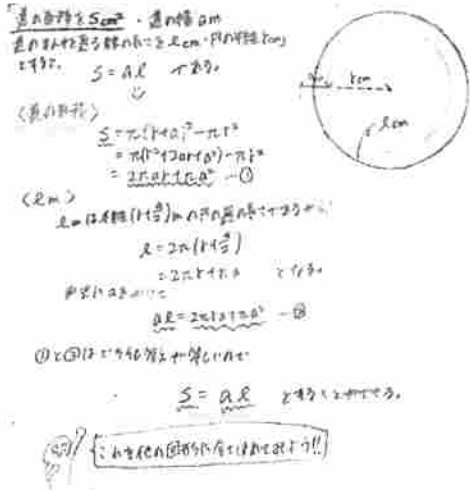 道の面積を Scm²・道の幅 am
道のまん中を通る線の長さを lcm・円の半径 rcm
とすると、
S = al である。
am rcm
lcm
〈道の面積〉
S = π(r+a)² − πr²
= π(r²+2ar+a²) − πr²
= 2πar+πa² − ①
〈lm〉
lmは半径(r+a/2)mの円の周の長さであるから
l = 2π(r+a/2)
= 2πr+πa となる。
両辺にaをかけて
al = 2πra+πa² − ②
①と②はどちらも答えが等しいので
S = al とすることができる。
これを他の図形でも当てはめてみよう!!